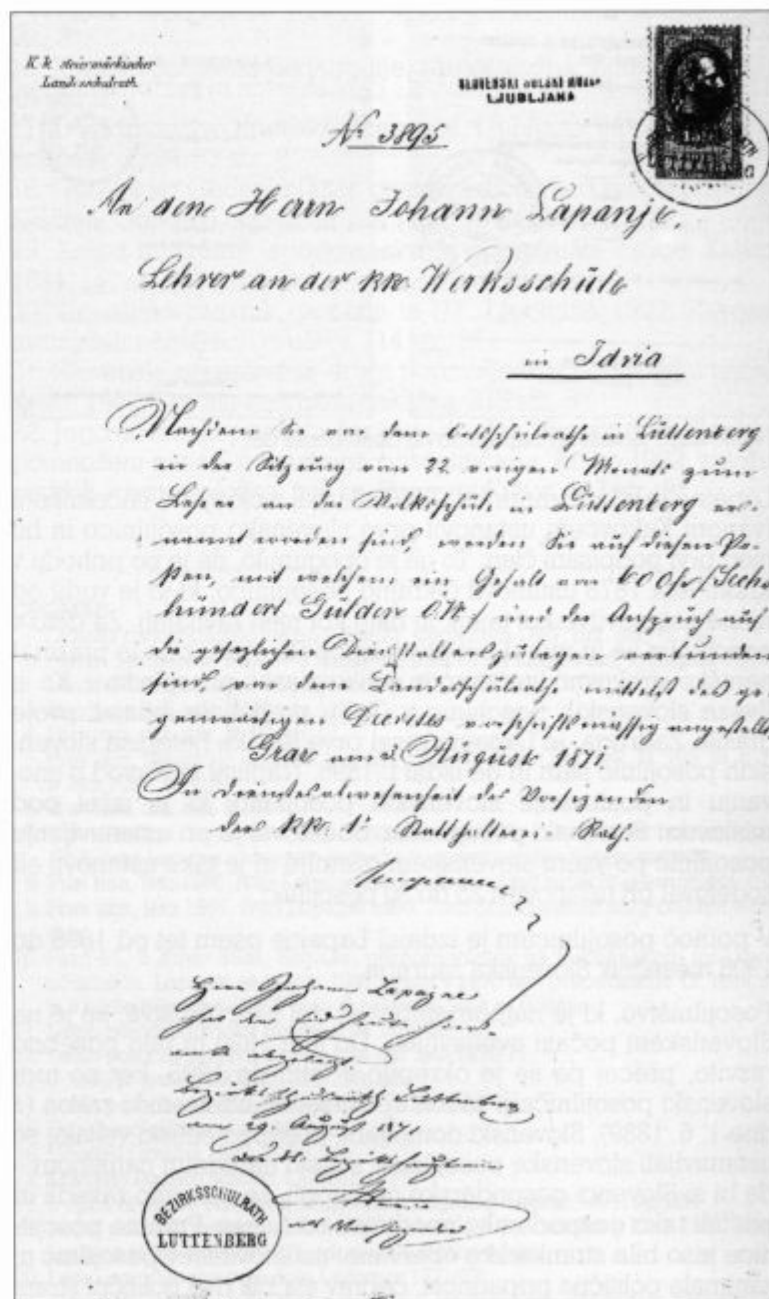 K. k. steiermärkischer
Landesschulrath.
SLOVENSKI ŠOLSKI MUZEJ
LJUBLJANA
LUTTENBERG
Nr. 3895
An den Herrn Johann Lapanje
Lehrer an der kk Werksschule
in Idria
Nachdem Sie von dem Ortsschulrathe in Luttenberg
in der Sitzung vom 22 vorigen Monats zum
Lehrer an der Volksschule in Luttenberg er-
nannt worden sind, werden Sie auf diesen Po-
sten, mit welchem ein Gehalt von 600 fr / Sechs
hundert Gulden ÖW / und der Anspruch auf
die gesetzlichen Dienstalterszulagen verbunden
sind von dem Landesschulrathe mittelst des ge-
genwärtigen Decretes vorschriftsmässig angestellt
Graz am August 1871
In Dienstesabwesenheit des Vorsitzenden
der kk Statthalterei Rath:
Herrn Johann Lapanje
Luttenberg
am 29 August 1871
BEZIRKSSCHULRATH
LUTTENBERG